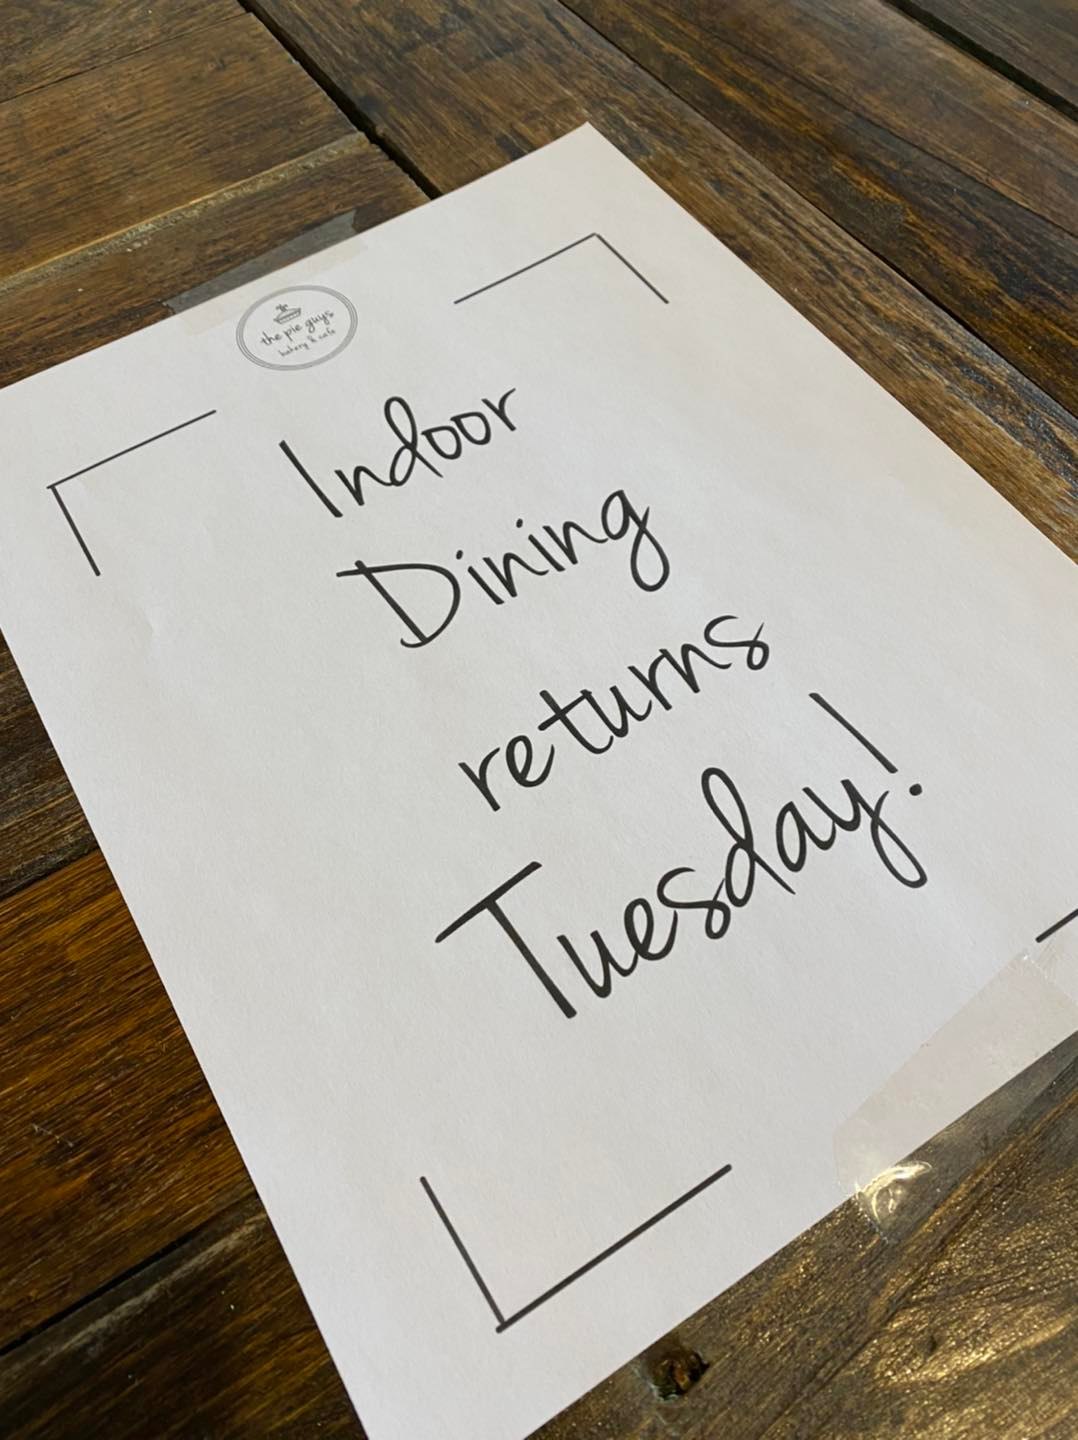 the pie guys
bakery & cafe
Indoor
Dining
returns
Tuesday!